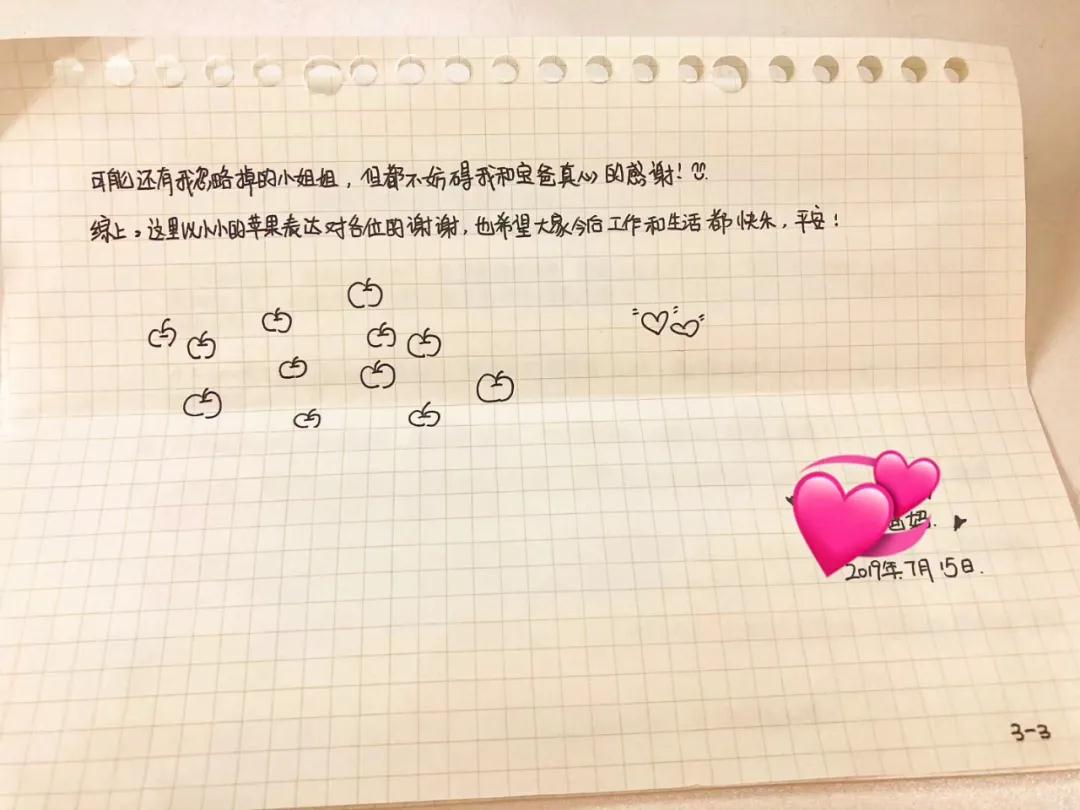 可能还有我忽略掉的小姐姐，但都不妨碍我和宝爸真心的感谢！
综上，这里以小小的苹果表达对各位的谢谢，也希望大家今后工作和生活都快乐，平安！
爸妈.
2019年7月15日.
3-3